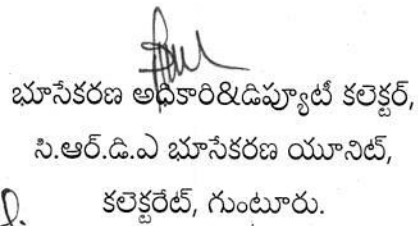 భూసేకరణ అధికారి&డిప్యూటీ కలెక్టర్,
సి.ఆర్.డి.ఎ భూసేకరణ యూనిట్,
కలెక్టరేట్, గుంటూరు.